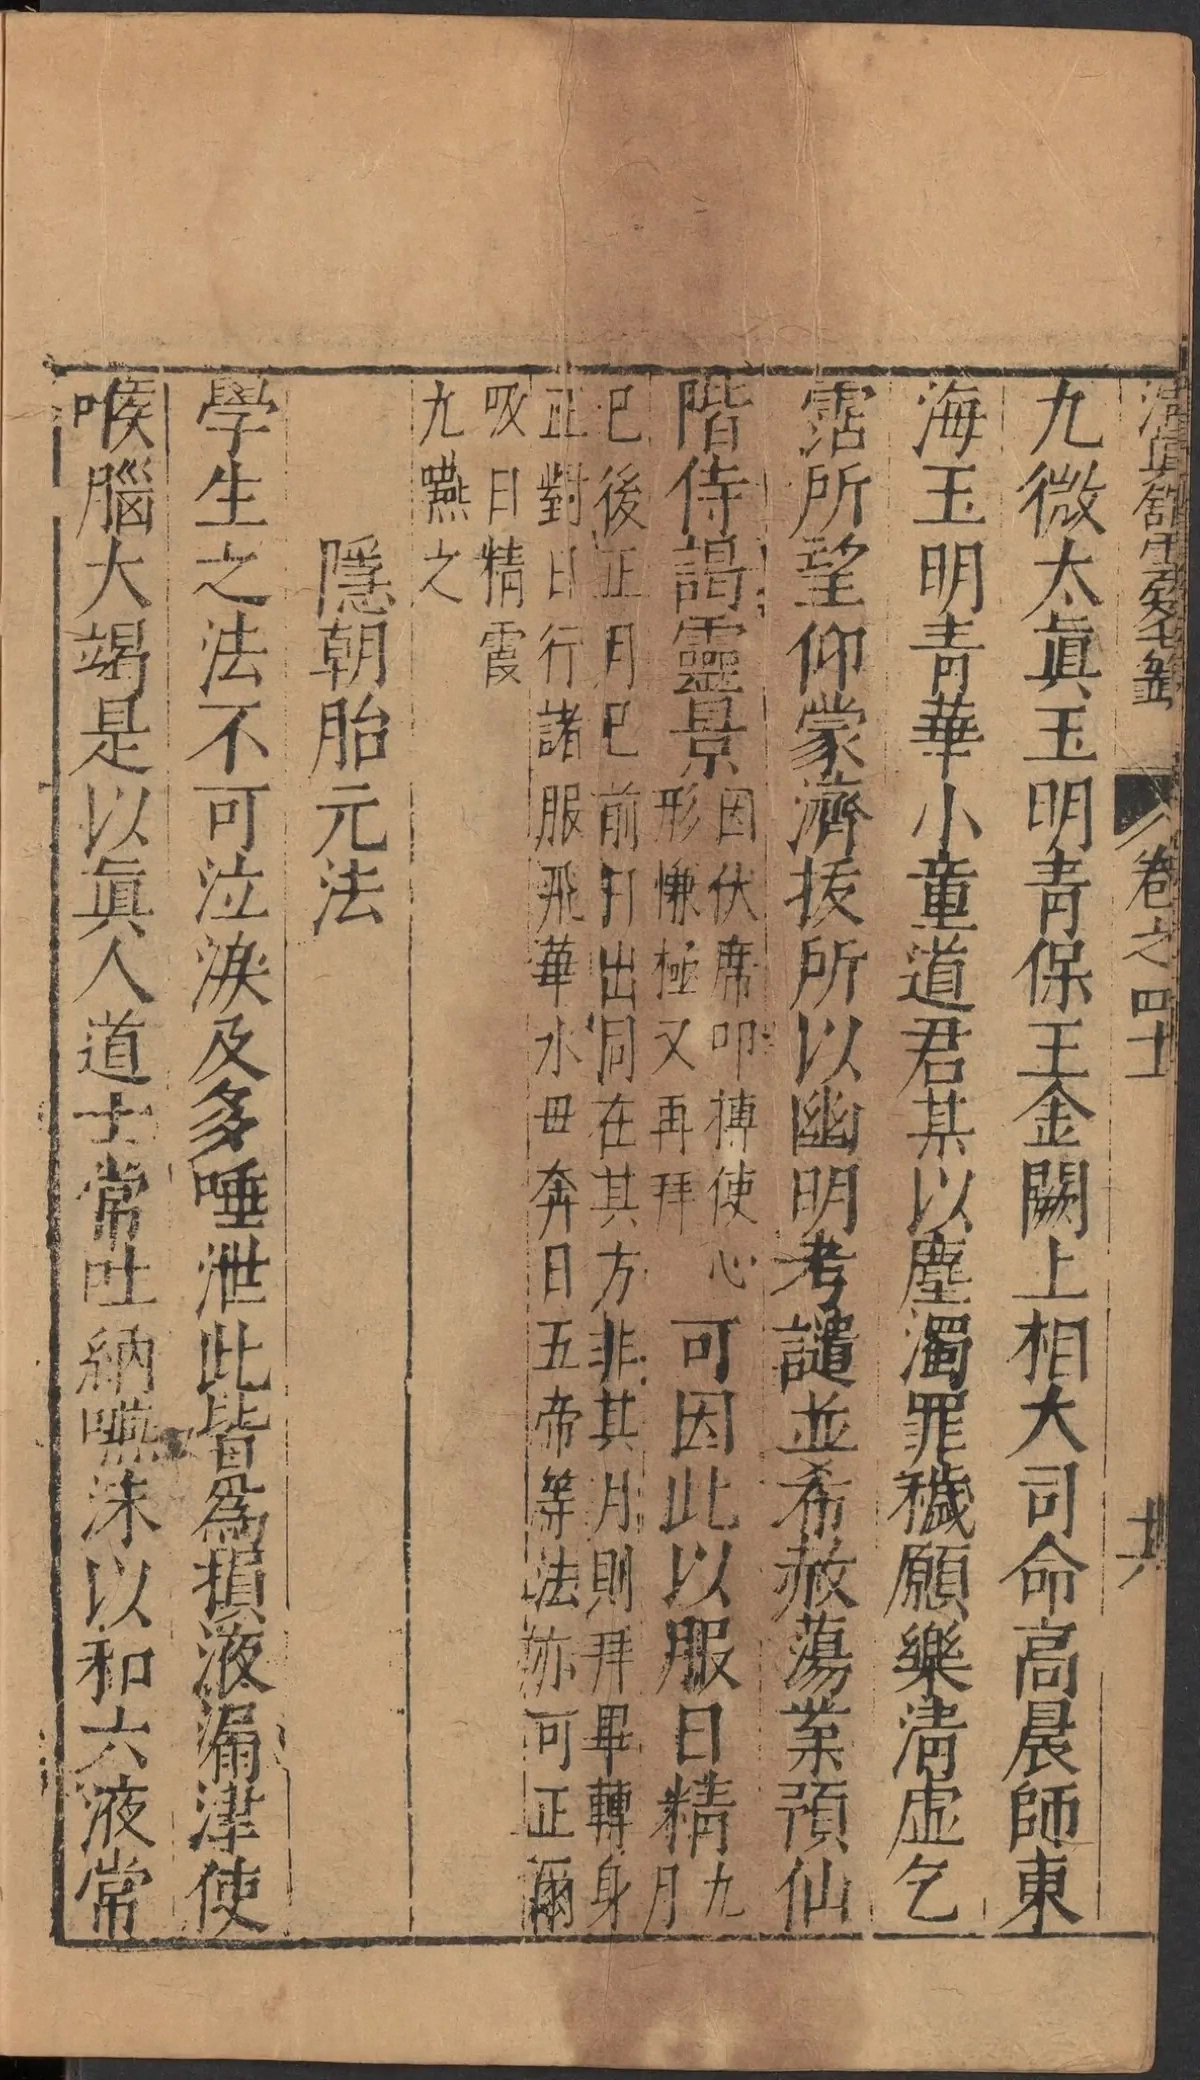 清真館雲笈七籤 卷之四十一 十六
九微太眞玉明青保王金闕上相大司命高晨師東
海玉明青華小童道君某以塵濁罪穢願樂清虛乞
霑所望仰蒙濟拔所以幽明考譴並希赦蕩業預仙
階侍謁靈景因伏席叩搏使心形慊極又再拜可因此以服日精九月
已後正月已前打出同在其方非其月則拜畢轉身
正對日行諸服飛華水毋奔日五帝等法亦可正爾
吸日精霞
九嚥之
隱朝胎元法
學生之法不可泣淚及多唾泄此皆爲損液漏津使
喉腦大竭是以眞人道士常吐納嚥沬以和六液常